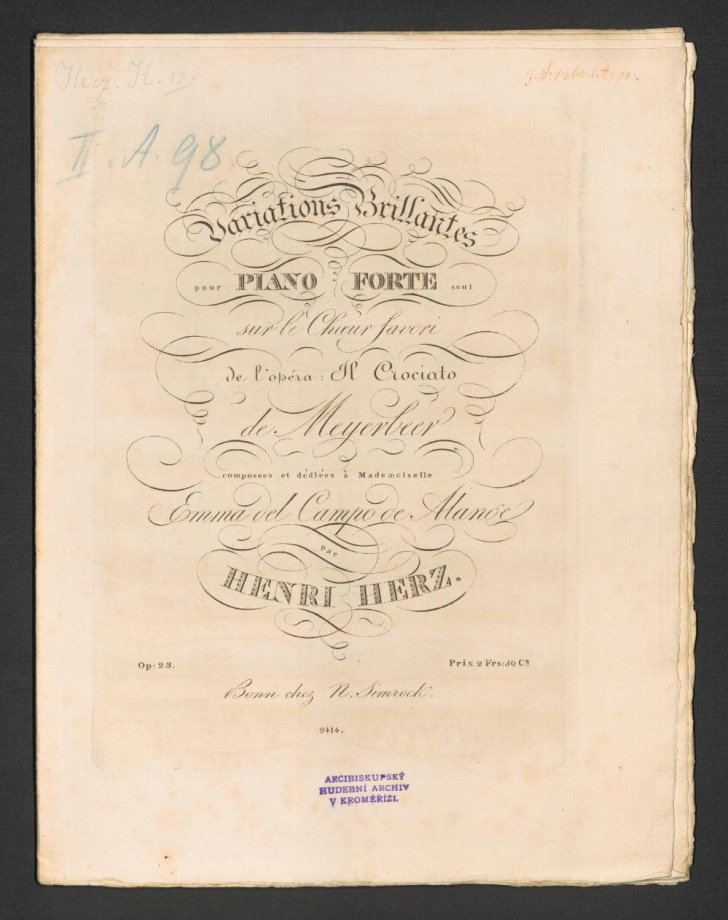 Herz. H. 13.
II. A. 98
Variations Brillantes
pour PIANO FORTE seul
sur le Chœur favori
de l'opéra: Il Crociato
de Meyerbeer
composees et dédiées à Mademoiselle
Emma del Campo de Alange
par
HENRI HERZ.
Op: 23. Prix 2 Frs: 50 Cs
Bonn chez N. Simrock.
2414.
ARCIBISKUPSKÝ
HUDEBNÍ ARCHIV
V KROMĚŘÍŽI.